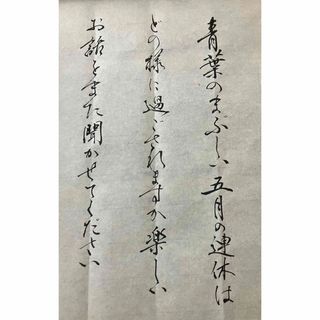 青葉のまぶしい五月の連休は
どの様に過ごされますか楽しい
お話をまた聞かせてください